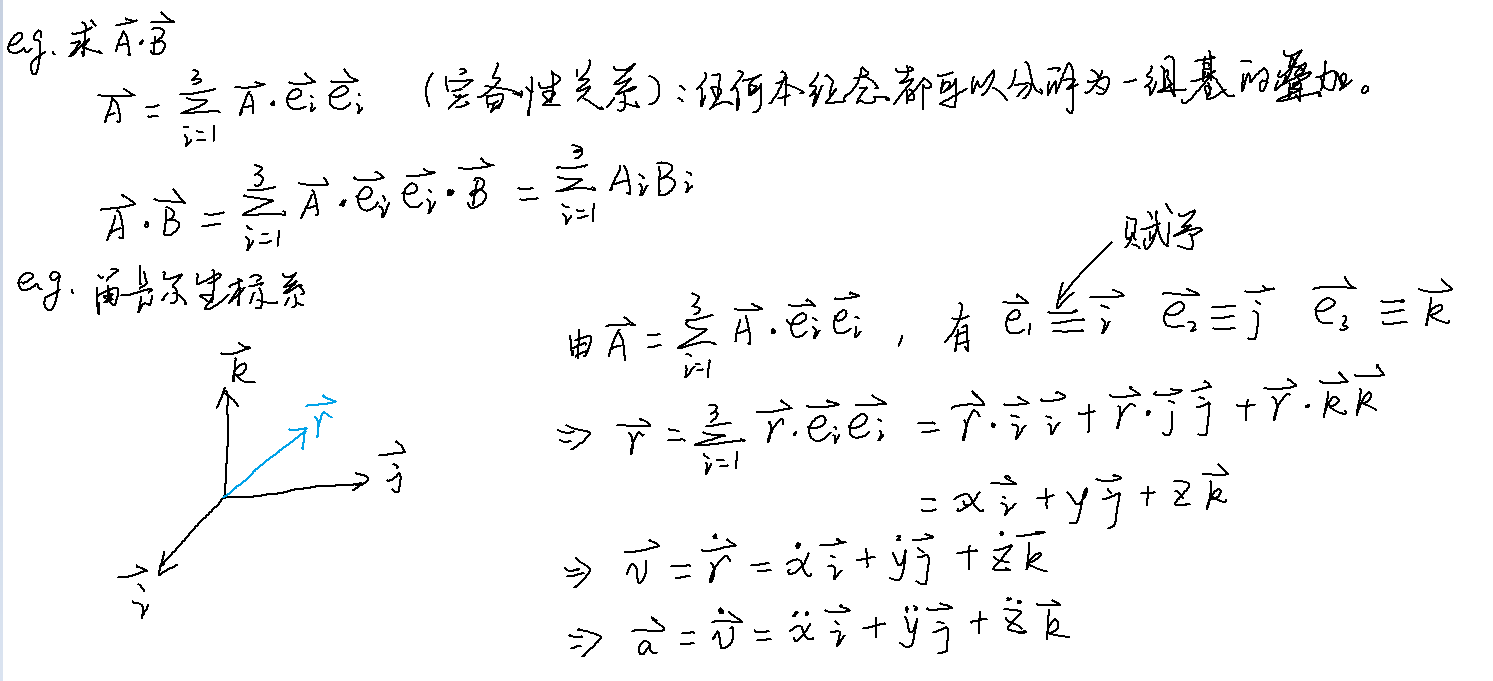 e.g. 求 $\vec{A}\cdot\vec{B}$
$\vec{A} = \sum_{i=1}^{3} \vec{A}\cdot\vec{e_i}\vec{e_i}$ （完备性关系）：任何本征态都可以分解为一组基的叠加。
$\vec{A}\cdot\vec{B} = \sum_{i=1}^{3} \vec{A}\cdot\vec{e_i}\vec{e_i}\cdot\vec{B} = \sum_{i=1}^{3} A_i B_i$
赋予
e.g. 笛卡尔坐标系
由 $\vec{A} = \sum_{i=1}^{3} \vec{A}\cdot\vec{e_i}\vec{e_i}$ ，有 $\vec{e}_1 \equiv \vec{i}$ $\vec{e_2} \equiv \vec{j}$ $\vec{e_3} \equiv \vec{k}$
$\Rightarrow \vec{r} = \sum_{i=1}^{3} \vec{r}\cdot\vec{e_i}\vec{e_i} = \vec{r}\cdot\vec{i}\vec{i} + \vec{r}\cdot\vec{j}\vec{j} + \vec{r}\cdot\vec{k}\vec{k}$
$= x\vec{i} + y\vec{j} + z\vec{k}$
$\Rightarrow \vec{v} = \dot{\vec{r}} = \dot{x}\vec{i} + \dot{y}\vec{j} + \dot{z}\vec{k}$
$\Rightarrow \vec{a} = \dot{\vec{v}} = \ddot{x}\vec{i} + \ddot{y}\vec{j} + \ddot{z}\vec{k}$
$\vec{k}$
$\vec{r}$
$\vec{j}$
$\vec{i}$